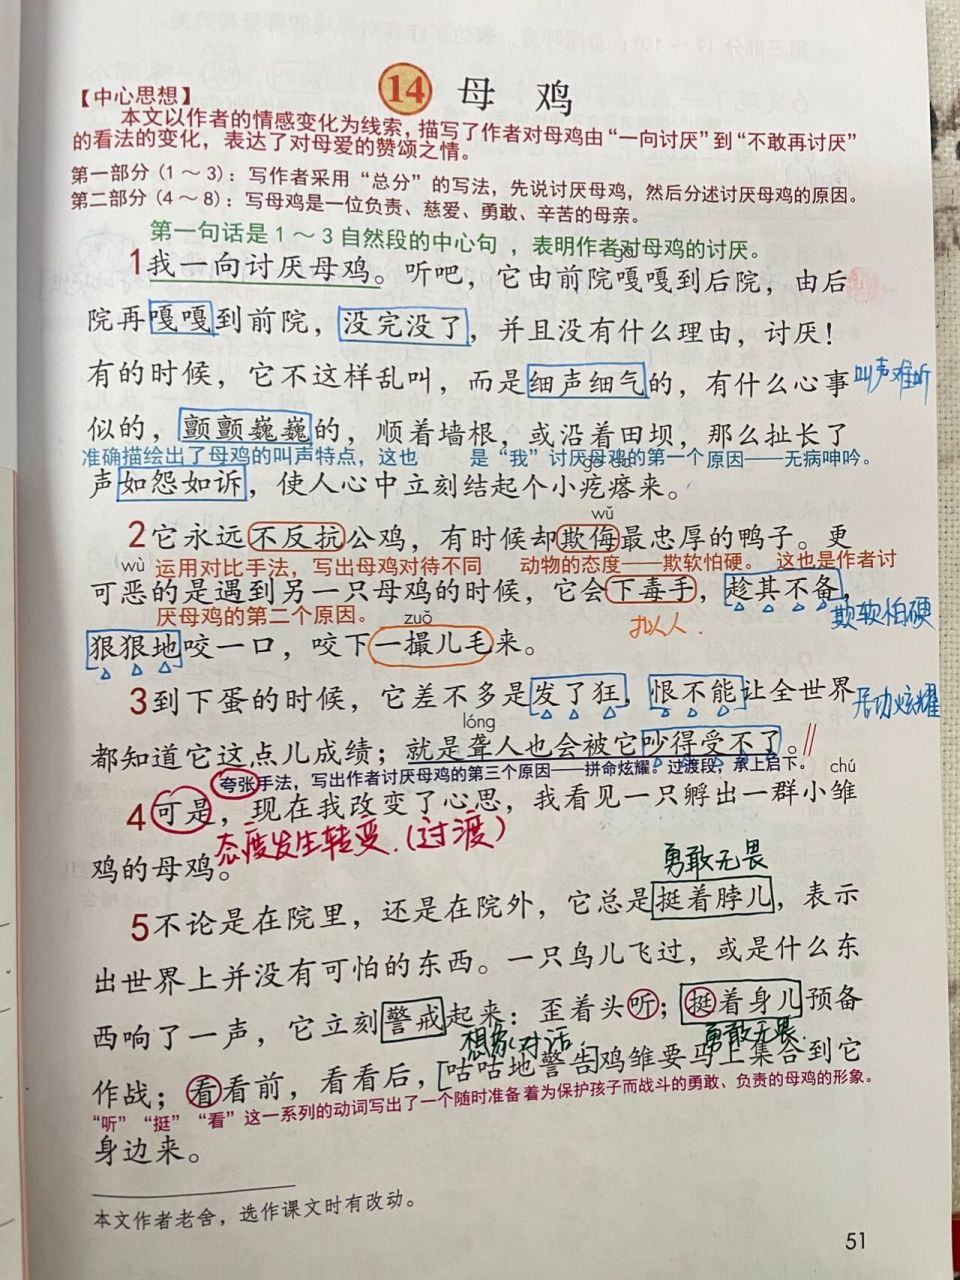 14 母鸡
【中心思想】
本文以作者的情感变化为线索，描写了作者对母鸡由“一向讨厌”到“不敢再讨厌”
的看法的变化，表达了对母爱的赞颂之情。
第一部分（1～3）：写作者采用“总分”的写法，先说讨厌母鸡，然后分述讨厌母鸡的原因。
第二部分（4～8）：写母鸡是一位负责、慈爱、勇敢、辛苦的母亲。
第一句话是1～3自然段的中心句，表明作者对母鸡的讨厌。
gā
1我一向讨厌母鸡。听吧，它由前院嘎嘎到后院，由后
院再嘎嘎到前院，没完没了，并且没有什么理由，讨厌！
有的时候，它不这样乱叫，而是细声细气的，有什么心事
叫声难听
似的，颤颤巍巍的，顺着墙根，或沿着田坝，那么扯长了
准确描绘出了母鸡的叫声特点，这也 是“我”讨厌母鸡的第一个原因——无病呻吟。
gē da
声如怨如诉，使人心中立刻结起个小疙瘩来。
wǔ
2它永远不反抗公鸡，有时候却欺侮最忠厚的鸭子。更
wù 运用对比手法，写出母鸡对待不同 动物的态度——欺软怕硬。 这也是作者讨
可恶的是遇到另一只母鸡的时候，它会下毒手，趁其不备，
厌母鸡的第二个原因。 zuǒ
拟人. 欺软怕硬
狠狠地咬一口，咬下一撮儿毛来。
3到下蛋的时候，它差不多是发了狂，恨不能让全世界
居功炫耀
lóng
都知道它这点儿成绩；就是聋人也会被它吵得受不了。//
夸张手法，写出作者讨厌母鸡的第三个原因——拼命炫耀。过渡段，承上启下。 chú
4可是，现在我改变了心思，我看见一只孵出一群小雏
态度发生转变.（过渡）
鸡的母鸡。
勇敢无畏
5不论是在院里，还是在院外，它总是挺着脖儿，表示
出世界上并没有可怕的东西。一只鸟儿飞过，或是什么东
西响了一声，它立刻警戒起来：歪着头听；挺着身儿预备
想象对话. 勇敢无畏.
作战；看看前，看看后，咕咕地警告鸡雏要马上集合到它
“听”“挺”“看”这一系列的动词写出了一个随时准备着为保护孩子而战斗的勇敢、负责的母鸡的形象。
身边来。
本文作者老舍，选作课文时有改动。
51